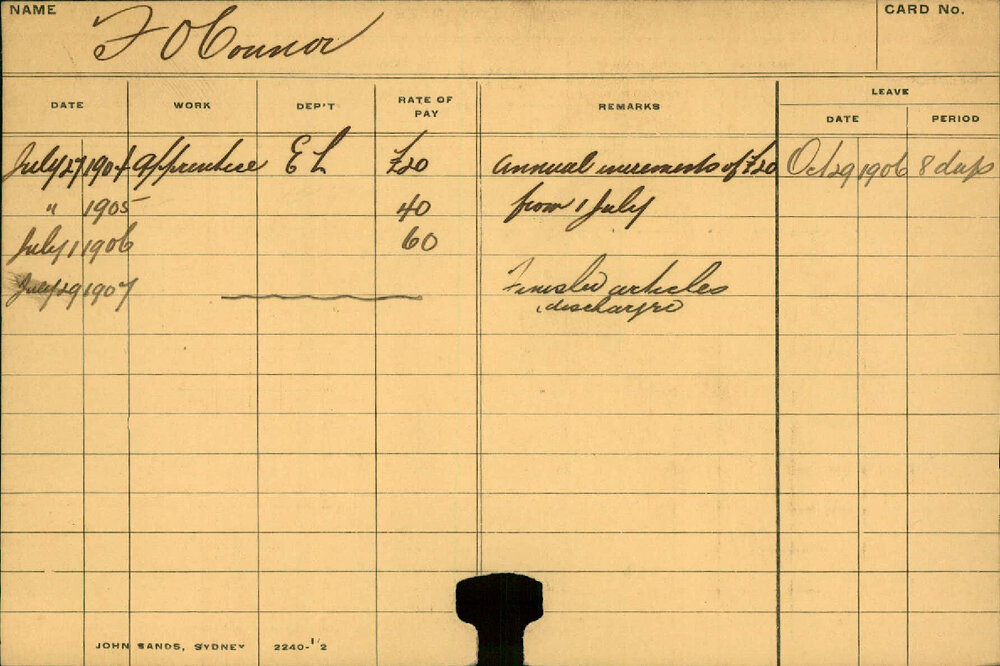 NAME F O'Connor CARD No.
DATE WORK DEP'T RATE OF PAY REMARKS LEAVE
DATE PERIOD
July 27 1904 Apprentice E L £20 Annual increments of £20 Oct 29 1906 8 days
" 1905 40 from 1 July
July 1 1906 60
July 29 1907 Finished articles
discharged
JOHN SANDS, SYDNEY 2240-1/2